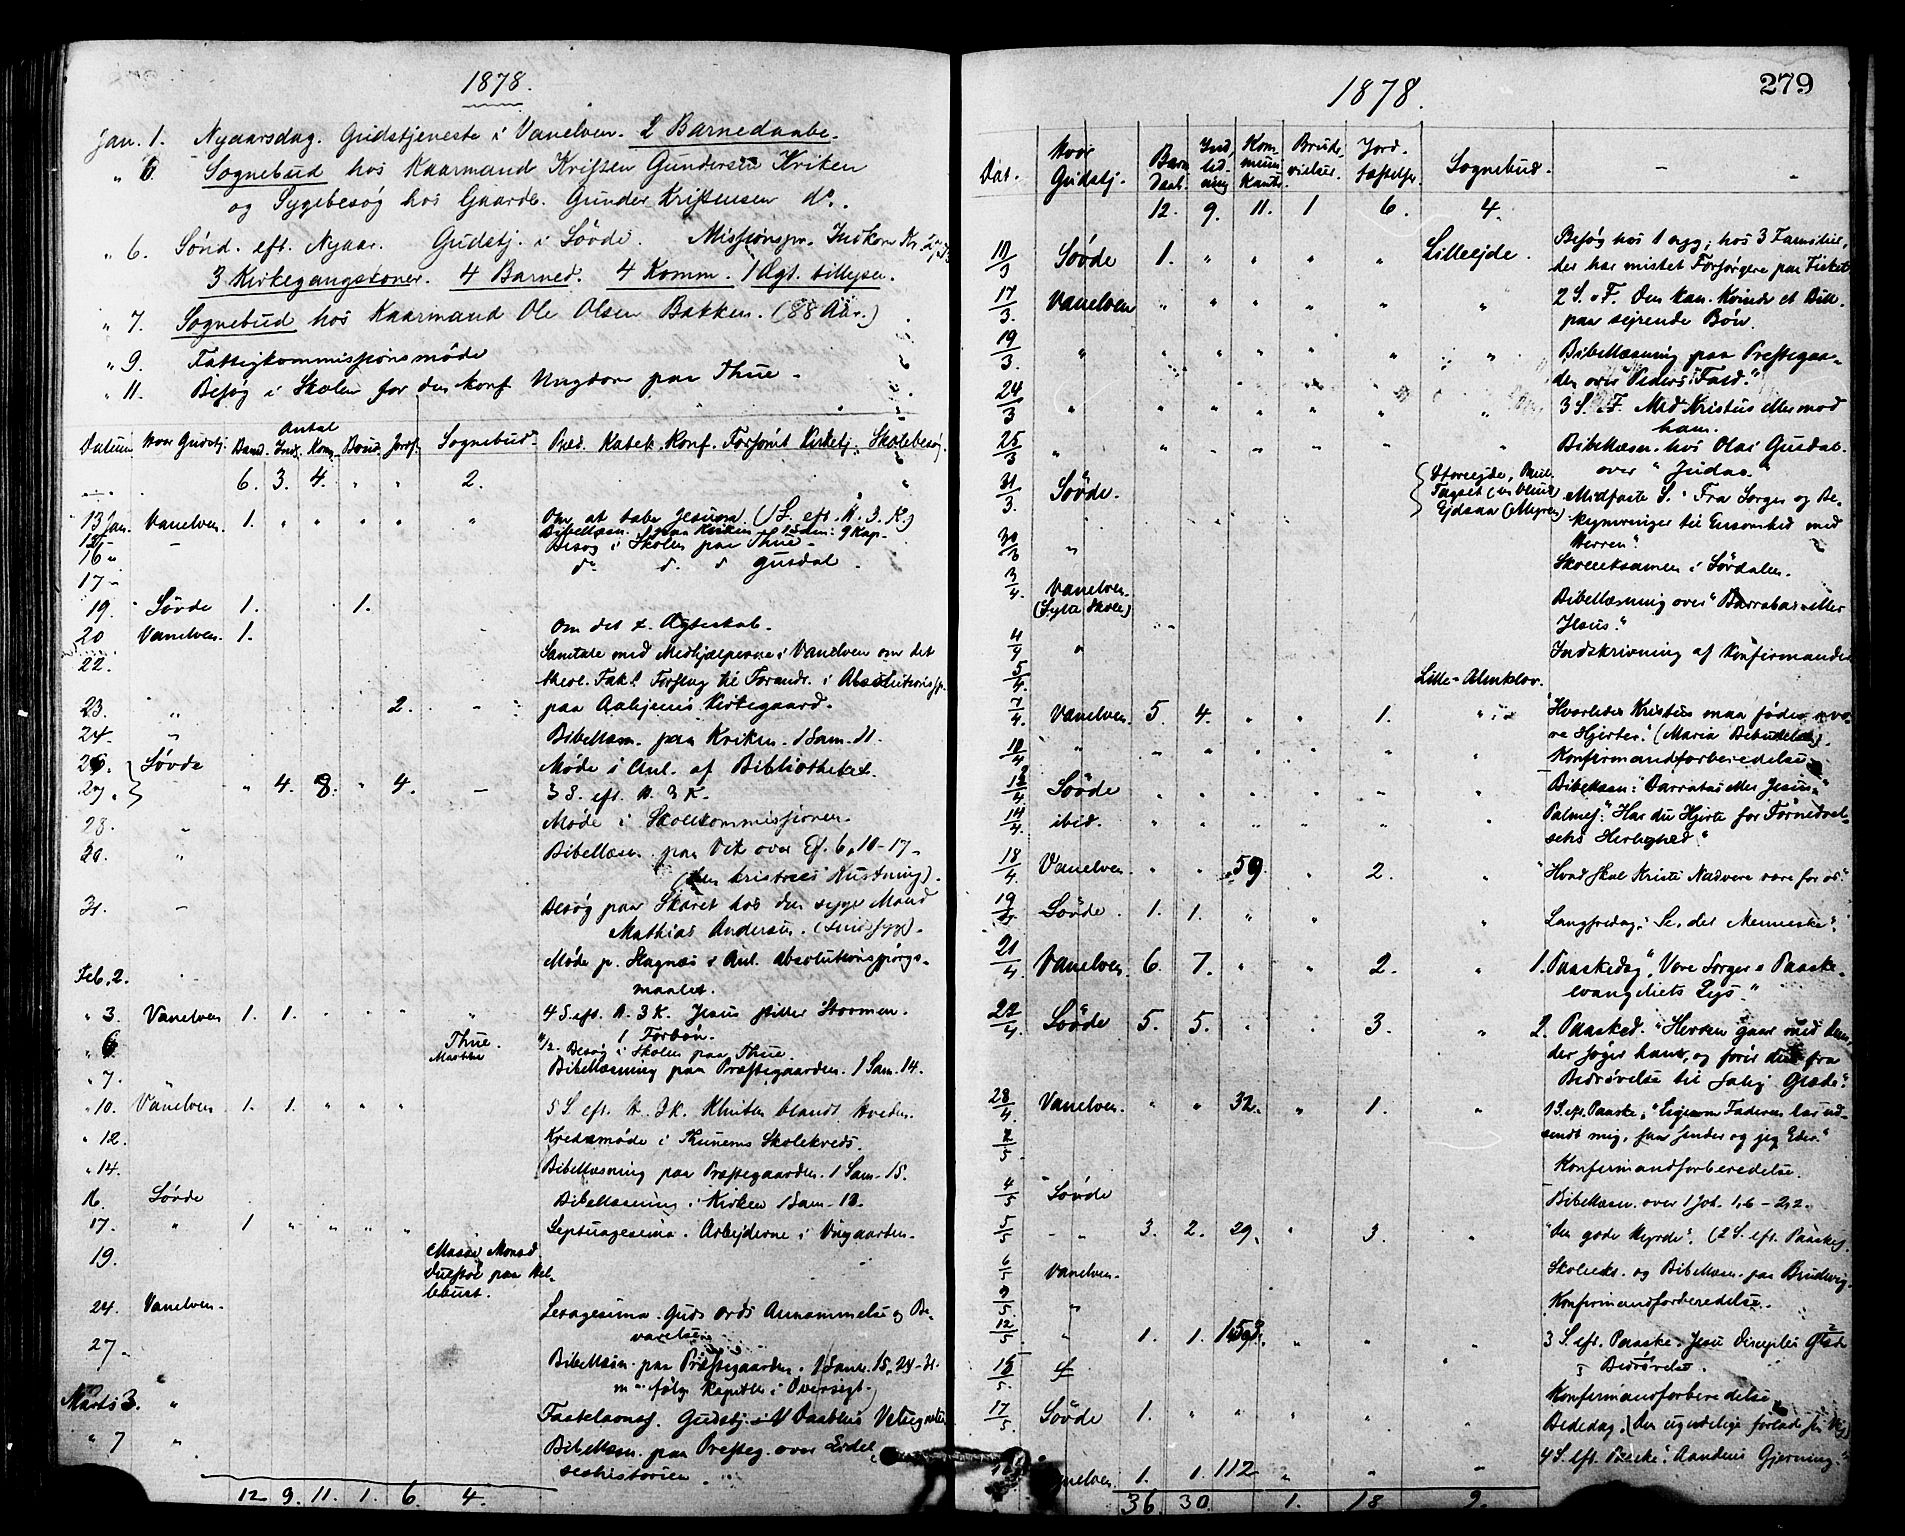 1878.
Jan. 1. Nyaarsdag. Gudstjeneste i Vanelven. 2 Barnedaabe.
" 6 Sognebud hos Kaarmand Kristen Gundersen Kriken
og Sygebesøg hos Gaardb. Gunder Kristensen do.
" 6. Sønd. eft. Nyaar. Gudstj. i Søvde. Missionspr.
3 Kirkegangskoner. 4 Barned. 4 Komm. 1 Ægt. tillyser.
" 7. Sognebud hos Kaarmand Ole Olsen Bakken. (88 Aar.)
" 9. Fattigkommissionsmøde
" 11. Besøg i Skolen for den konf. Ungdom paa Thue.
Antal
Datum Hvor Gudstj. Barned. Ind. Kom. Brud. Jordf. Sognebud. Præd. Katek. Konf. Forsömt Kirketj. Skolebesøg.
6. 3. 4. " " 2. "
13 Jan. Vanelven. 1. " " " " " Om at tabe Jesum (1 S. eft. H. 3. K.)
16 " - Besøg i Skolen paa Thue.
17 - do d. d Gusdal.
19. Søvde 1. 1.
20 Vanelven. 1. Om det x. Ægteskab.
22. Samtale med Medhjælperne i Vanelven om det
theol. Fak. Forslag til Forandr. i Absolutionssp.
23. " 2. - paa Aahjems Kirkegaard.
24. " Bibellæsn. paa Kriken. 1 Sam. 11.
26. Søvde Møde i Anl. af Bibliotheket.
27. " 4. 8. " 4. - 3 S. eft. H. 3 K.
28. " Møde i Skolekommissionen.
" Bibellæsn. paa Vik over Ef. 6, 10-17.
(den kristnes Rustning).
31. - Besøg paa Skaret hos den syge Mand
Mathias Andersen.
Feb. 2. Møde p. Hagnæs i Anl. Absolutionsspørgs-
maalet.
" 3. Vanelven 1. 1. " " " " 4 S. eft. H. 3 K. Jesus stiller Stormen.
1 Forbøn.
" 6 Thue. Besøg i Skolen paa Thue.
" 7. Bibellæsning paa Præstegaarden. 1 Sam. 14.
" 10. Vanelven 1. 1. " " " 5 S. eft. H. 3 K. Klinten blandt Hveden.
" 12. Kredsmøde i Thunems Skolekreds.
" 14. Bibellæsning paa Præstegaarden. 1 Sam. 15.
16. Søvde Bibellæsning i Kirken 1 Sam. 10.
17. " 1 " " " " Septuagesima. Arbejderne i Vingaarden.
19.
24. Vanelven. Sexagesima. Guds Ords Annammelse og Be-
varelse.
27. Bibellæsn. paa Præstegaarden. 1 Sam. 15, 24-31.
m. følg. Kapitler i Oversigt.
Marts 3. " Fastelavnsf. Gudstj.
" 7 " Bibellæsn. paa Præsteg. over Lidel-
seshistorien.
12 9. 11. 1. 6 4.
1878. 279
Dat. Hvor Gudstj. Barn Daab. Ind led ning Kom- muni kanter Brude- vielser. Jord- fæstelser. Sognebud. - -
12. 9. 11. 1 6. 4.
10/3 Søvde 1. " " " " Lilleejde. Besøg hos 1 syg; hos 3 Familier,
der har mistet Forsørgere paa Fisket
17/3. Vanelven " " " " " " 2 S. i F. Den kan. Kvinde et Bill.
paa sejrende Bøn.
19/3. " " " " " " " Bibellæsning paa Prestegaar-
den over "Peders Fald."
24/3 " " " " " " " 3 S. i F. Med Kristus eller mod
ham.
25/3 " " " " " " Bibellæsn. hos Olai Gusdal
over "Judas."
31/3. Søvde. Storeejde, Midfaste S. Fra Sorger og Be-
kymringer til Ensomhed med
Herren."
30/3 " Skoleeksamen i Sørdalen.
3/4. Vanelven. (Sylte Skole) Bibellæsning over "Barrabas eller
Jesus."
4/4 " Indskrivning af Konfirmander
5/4. Lille-Almklov.
7/4. Vanelven. 5. 4. " " 1. " "Hvorledes Kristus maa fødes i vo-
re Hjerter." (Maria Bebudelse).
10/4 " " " " " " Konfirmandforberedelse
12/4. Søvde " " " " " " Bibellæsn: "Barrabas eller Jesus."
14/4. ibid. " " " " " " Palmes.: "Har du Hjerte for Fornedrel-
sens Herlighed."
18/4. Vanelven. " " 59. " 2. " "Hvad skal Kristi Nadvere være for os."
19/4 Søvde. 1. 1. " " " Langfredag: Se, det Menneske".
21/4 Vanelven. 6. 7. " " 2. " 1. Paaskedag "Vore Sorger i Paaske-
evangeliets Lys."
22/4. Søvde 5. 5. " " 3. " 2. Paasked. "Herren gaar med dem,
der søger ham, og fører dem fra
Bedrøvelse til salig Glæde."
28/4 Vanelven. " " 32. " 1. " 1 S. eft. Paaske, "Ligesom Faderen har ud-
sendt mig, saa sender og jeg Eder."
2/5 Konfirmandforberedelse.
4/5 Søvde Bibellæsn. over 1 Joh. 1,6 - 2,2.
5/5 - " 3. 2. 29. " 3. " "Den gode Hyrde". (2 S. eft. Paaske).
6/5 Vanelven. Skoleeks. og Bibellæsn. paa
9/5 " Konfirmandforberedelse.
12/5 " 1. 1. " " " 3 S. eft. Paaske. Jesu Disciples Glæde
i Bedrøvelse.
15/5. Konfirmandforberedelse
17/5 Søvde 1. " " " " " Bededag.
Vanelven 1. 1. 112 " " - 4 S. eft. Paaske. Aandens Gjerning."
36. 30. 1. 18 9.